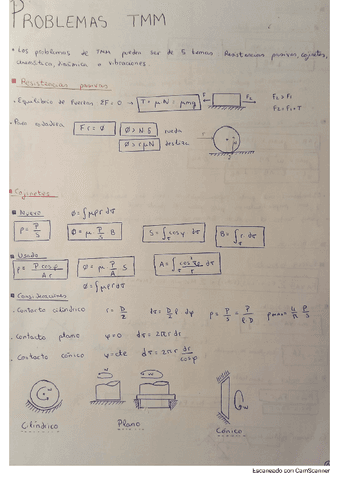 PROBLEMAS TMM
• Los problemas de TMM pueden ser de 5 temas: Resistencias pasivas, cojinetes,
cinemática, dinámica o vibraciones.
Resistencias pasivas
• Equilibrio de fuerzas ΣF=0 → T = μN = μmg
F₂ = F₁ + T
• Para rodadura
Fr = Φ
Φ > N δ rueda
Φ > r μ N desliza
Cojinetes
Nuevo
Φ = ∫ μ p r dσ
p = P/S
Φ = μ P/S B
S = ∫ cos φ dσ
B = ∫ r dσ
Usado
Φ = μ P/A S
Φ = ∫ μ p r dσ
Consideraciones
• Contacto cilíndrico r = D/2 dσ = D/2 ℓ dφ p = P/S = P/ℓ·D
• Contacto plano φ=0 dσ = 2πr dr
• Contacto cónico φ=cte dσ = 2πr dr/cos φ
Cilíndrico
Plano
Cónico
Escaneado con CamScanner